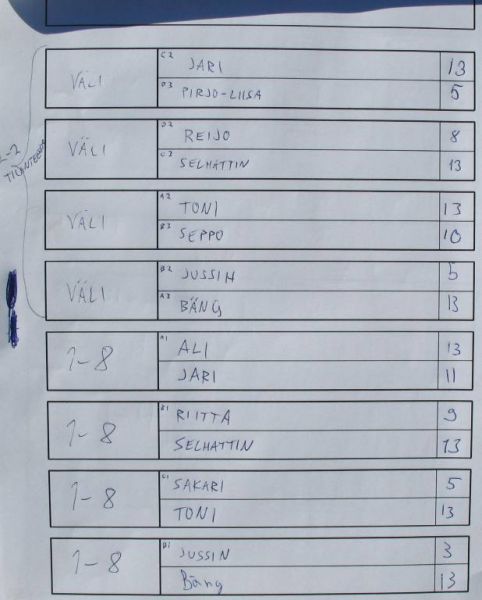 VÄLI C2 JARI 13
D3 PIRJO-LIISA 5
VÄLI D2 REIJO 8
C3 SELHATTIN 13
VÄLI A2 TONI 13
B3 SEPPO 10
VÄLI B2 JUSSIH 5
A3 BÄNG 13
1-8 A1 ALI 13
JARI 11
1-8 B1 RIITTA 9
SELHATTIN 13
1-8 C1 SAKARI 5
TONI 13
1-8 D1 JUSSIN 3
Bäng 13